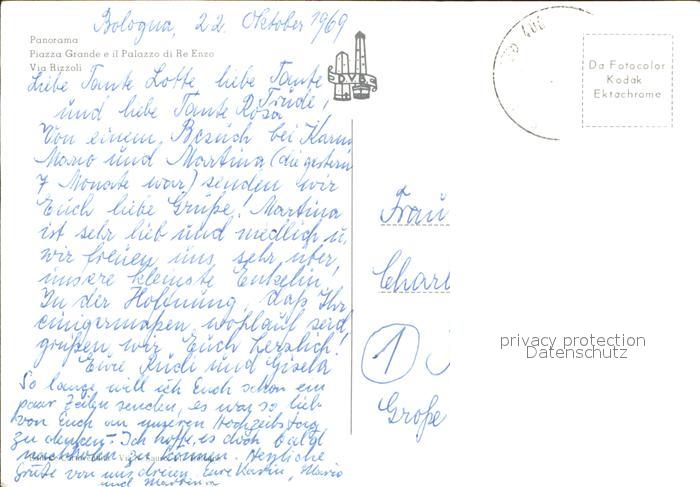 Bologna, 22. Oktober 1969
Panorama
Piazza Grande e il Palazzo di Re Enzo
Via Rizzoli
Liebe Tante Lotte, liebe Tante
Trude,
und liebe Tante Rosa
Von einem Besuch bei Karin
Mario und Martina (die gestern
7 Monate war) senden wir
Euch liebe Grüße! Martina
ist sehr lieb und niedlich u.
wir freuen uns sehr über
unsere kleinste Enkelin.
In der Hoffnung, daß Ihr
einigermaßen wohlauf seid,
grüßen wir Euch herzlich!
Eure Rudi und Gisela
So lange will ich Euch schon ein
paar Zeilen senden, es war so lieb
von Euch an unseren Hochzeitstag
zu denken. Ich hoffe, es doch bald
nachholen zu können. Herzliche
Grüße von uns dreien, Eure Karin, Mario
und Martina
D.V.B.
Da Fotocolor
Kodak
Ektachrome
Frau
Charl
1
Große
privacy protection
Datenschutz